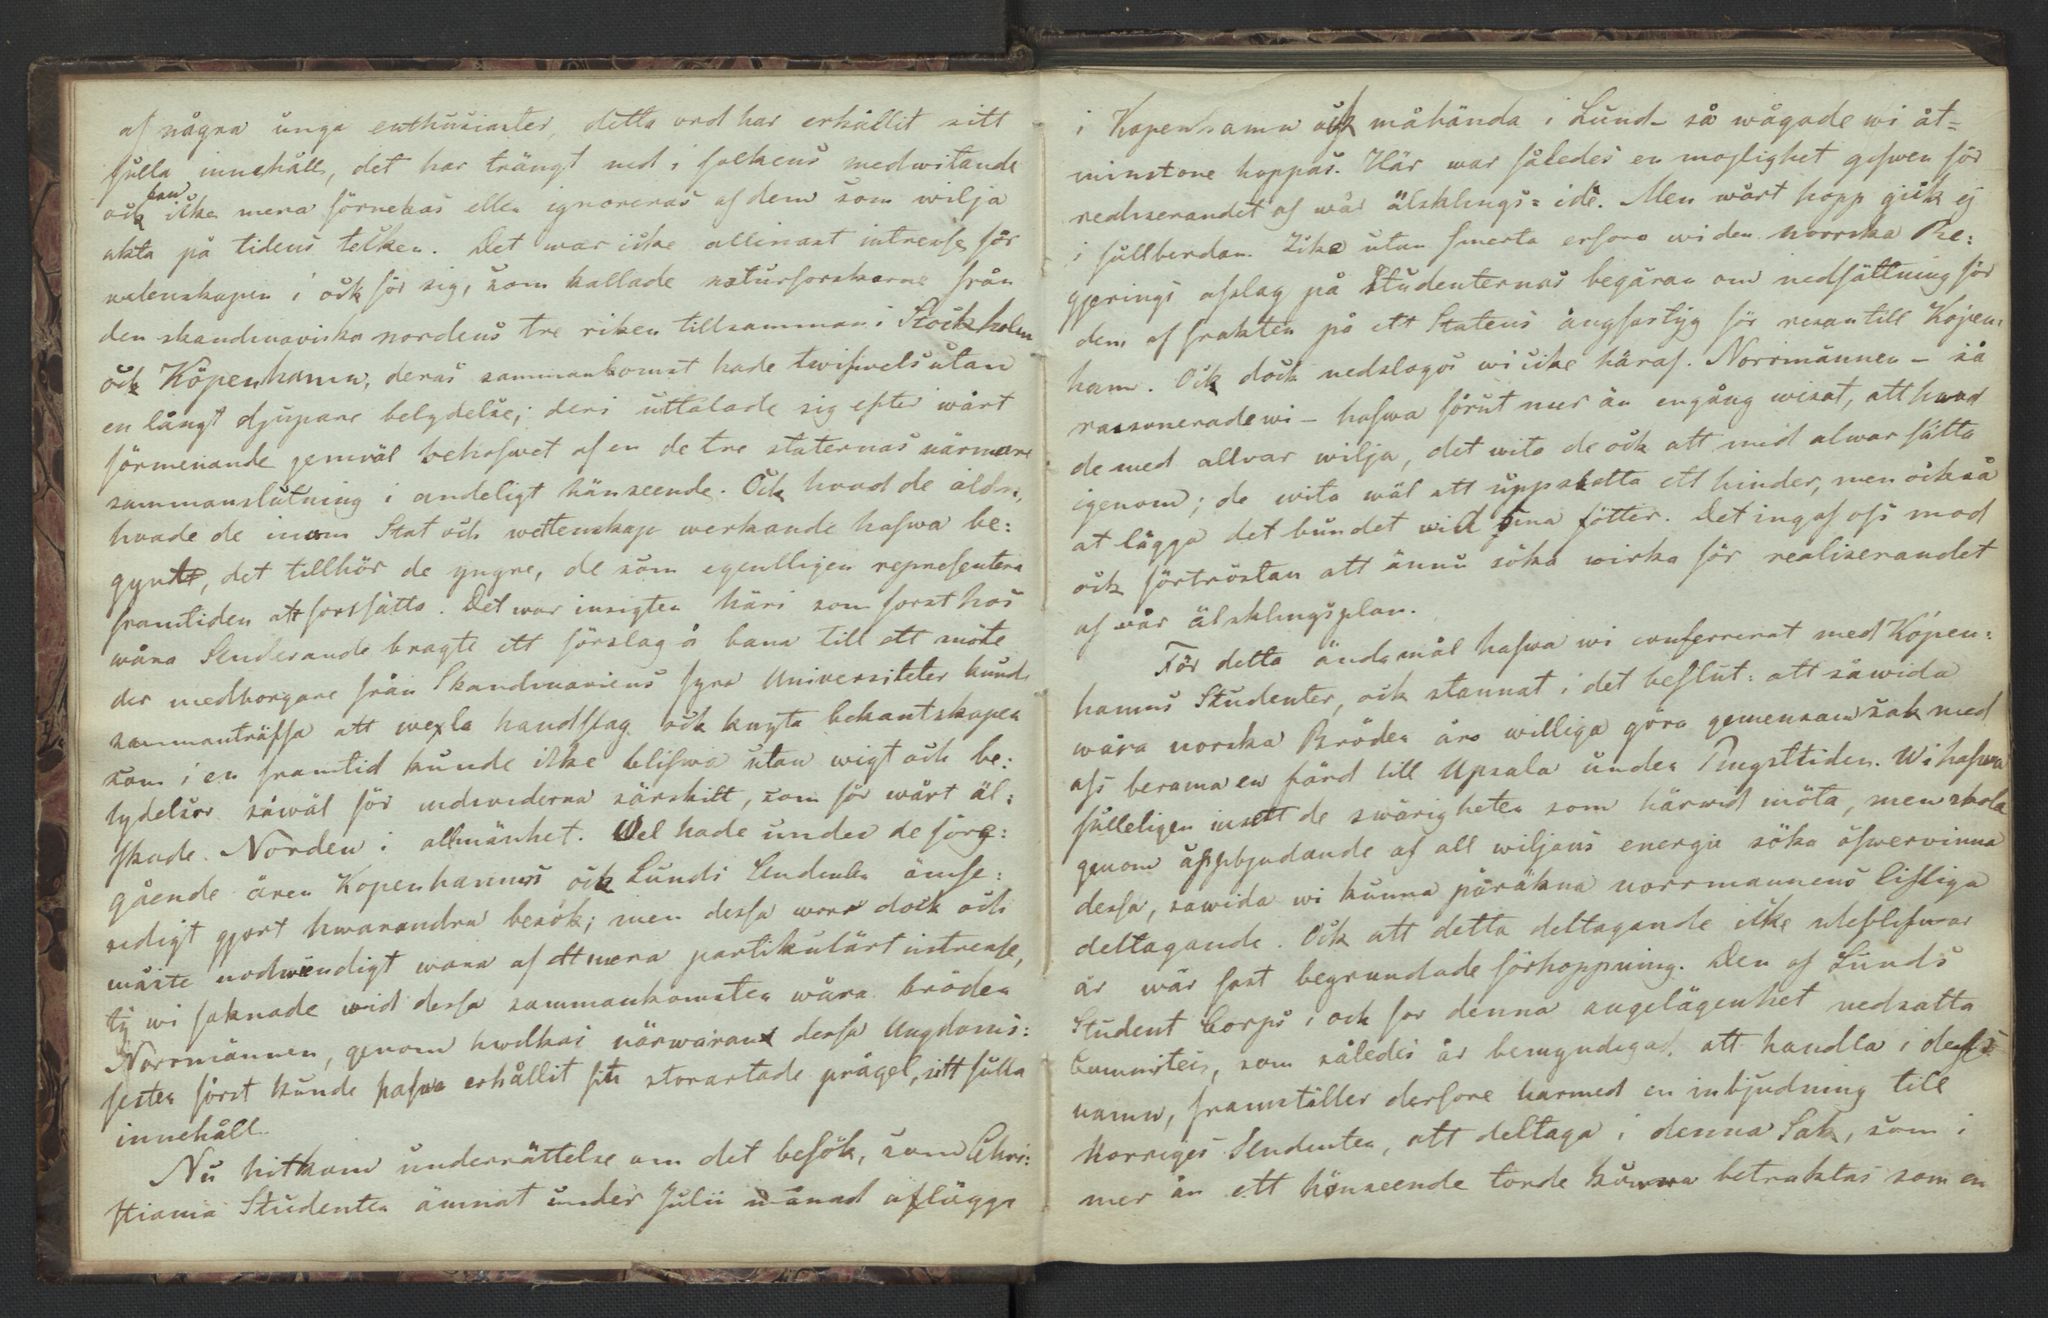 af några unga enthusiaster, detta ord har erhållit sitt
fulla innehåll, det har trängt ned i folkens medwitande
kan
ock icke mera förnekas eller ignoreras af dem som wilja
akta på tidens tecken. Det war icke allinast intresse för
vetenskapen i ock för sig, som kallade naturforskarne från
den skandinaviska nordens tre riken tillsamman i Stockholm
ock Köpenhamn, deras sammankomst hade twifwelsutan
en långt djupare betydelse; deri uttalade sig efter wårt
förmenande jemväl behofwet af en de tre staternas närmare
sammanslutning i andeligt hänseende. Ock hvad de äldre,
hvade de inom Stat och wettenskap werkande hafwa be:
gynt, det tillhör de yngre, de som egentligen representera
framtiden att fortsätta. Det war insigten häri som först hos
wåra Studerande bragte ett förslag å bane till ett möte
der medborgare från Skandinaviens fyra Universiteter kunde
sammanträffa att wexla handslag ock knyta bekantskaper
som i en framtid kunde icke blifwa utan wigt och be:
tydelser såwäl för individerna särskilt, som för wårt äl:
skade Norden i allmänhet. Wel hade under de före:
gående åren Kopenhamns ock Lunds Studenter ömse:
sidigt gjort hwarandra besök; men dessa woro dock och
måste nodwendigt wara af ett mera partikulärt intresse,
ty wi saknade wid dessa sammankomster wåra bröder
Norrmännen, genom hwilkas närwarant dessa Ungdoms:
fester först kunde hafwa erhållit sin storartade prägel, sitt fulla
innehåll.
Nu hitkom underrättelse om det besök, som Chri:
stiania Studenter ämnat under Julii månad aflägga
i Kopenhamn ock måhända i Lund – så wågade wi åt=
minstone hoppas. Här war således en mojlighet gifwen för
realiserandet af wår älsklings=idé. Men wårt hopp gick ej
i fullbordan. Icke utan smerta erforo wi den norrska Re:
gjerings afslag på Studenternas begäran om nedsättning för
dem af frakten på ett Statens ångfartyg för resan till Köpen:
hamn. Ock dock nedslogos wi icke häraf. Norrmännen – så
rasonerade wi – hafwa förut mer än engång wisat, att hwad
de med allvar wilja, det wita de ock att med alwar sätta
igenom; de wita wäl att uppskatta ett hinder, men ock så
at lägga det bundet wid sina fötter. Det ingaf oss mod
ock förtröstan att ännu söka wirka för realiserandet
af vår älsklingsplan.
För detta ändamål hafwa wi conferrerat med Köpen:
hamns Studenter, ock stannat i det beslut: att såwida
wåra norska Bröder äro williga göra gemensam sak med
oss berama en färd till Upsala under Pingsttiden. Wi hafwa
fulleligen insett de swårigheter som härwid möta, men skola
genom uppbjudande af all wiljans energie söka öfwervinna
dessa, sawida wi kunna påräkna norrmannens lifliga
deltagande. Ock att detta deltagande icke uteblifwar
är wår fast begrundade förhoppning. Den af Lunds
Student Corps i ock for denna angelägenhet nedsatta
Committeis, som således är bemyndigad att handla i dess
namn, framställer derfore harmed en inbjudning till
Norriges Studenter, att deltaga i denna Sak, som i
mer än ett hänseende torde kunna betraktas som en